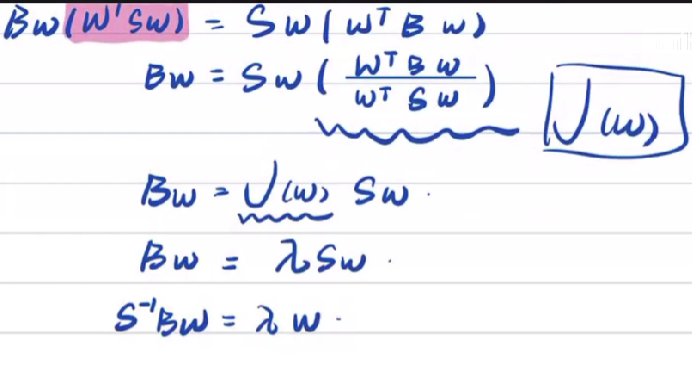 Bw(wᵀSw) = Sw(wᵀBw)
Bw = Sw(wᵀBw / wᵀSw)
J(w)
Bw = J(w) Sw.
Bw = λSw.
S⁻¹Bw = λw.